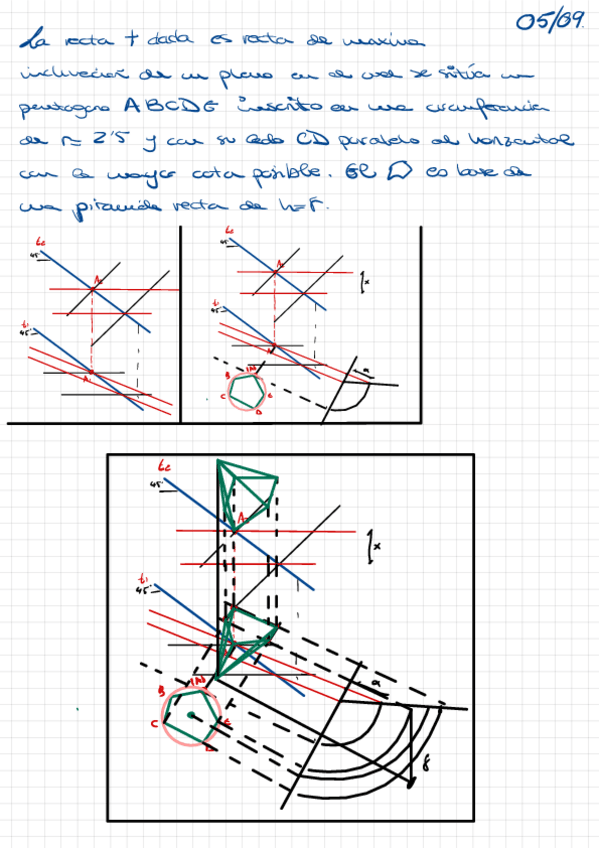 05/09.
La recta t dada es recta de maxima
inclinación de un plano en el cual se sitúa un
pentagono ABCDE inscrito en una circunferencia
de r= 2'5 y con su lado CD paralelo al horizontal
con la mayor cota posible. El es base de
una piramide recta de h=8.
t₂
45
A₂
t₁
45
A₁
t₂
45
A₂
x
t₁
45
A₁
a
B
(A)
C
E
D
t₂
45
A₂
x
t₁
45
a
B
(A)
C
E
D
8